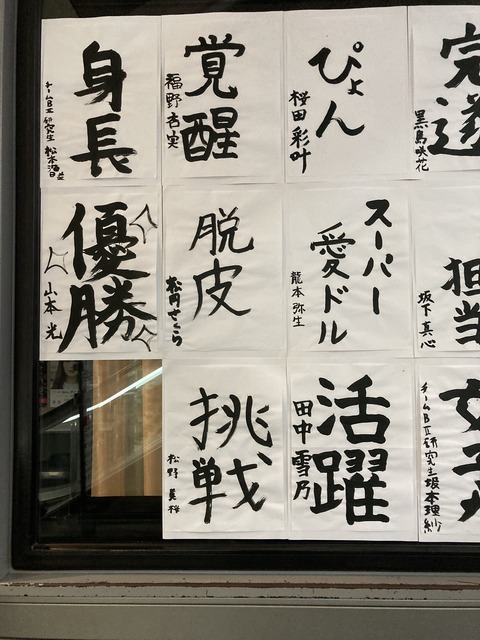 身長
チームBⅡ研究生
覚醒
福野杏実
ぴょん
桜田彩叶
完遂
黒島咲花
優勝
山本光
脱皮
松岡さくら
スーパー
愛ドル
龍本弥生
担当
坂下真心
挑戦
松野
活躍
田中雪乃
女子
チームBⅡ研究生坂本理紗